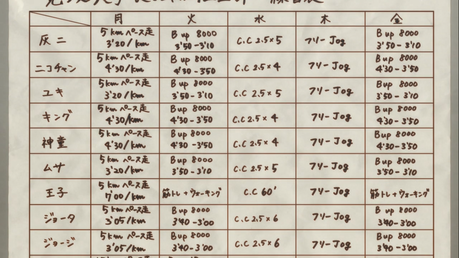 月 火 水 木 金
灰二 5km ペース走 3'20/km B up 8000 3'50-3'10 C.C 2.5×5 フリーJog B up 8000 3'50-3'10
ニコチャン 5km ペース走 4'30/km B up 8000 4'30-3'50 C.C 2.5×4 フリーJog B up 8000 4'30-3'50
ユキ 5km ペース走 3'20/km B up 8000 3'50-3'10 C.C 2.5×5 フリーJog B up 8000 3'50-3'10
キング 5km ペース走 4'30/km B up 8000 4'30-3'50 C.C 2.5×4 フリーJog B up 8000 4'30-3'50
神童 5km ペース走 4'30/km B up 8000 4'30-3'50 C.C 2.5×4 フリーJog B up 8000 4'30-3'50
ムサ 5km ペース走 3'20/km B up 8000 3'50-3'10 C.C 2.5×5 フリーJog B up 8000 3'50-3'10
王子 5km ペース走 7'00/km 筋トレ+ウォーキング C.C 60' フリーJog 筋トレ+ウォーキング
ジョータ 5km ペース走 3'05/km B up 8000 3'40-3'00 C.C 2.5×6 フリーJog B up 8000 3'40-3'00
ジョージ 5km ペース走 3'05/km B up 8000 3'40-3'00 C.C 2.5×6 フリーJog B up 8000 3'40-3'00